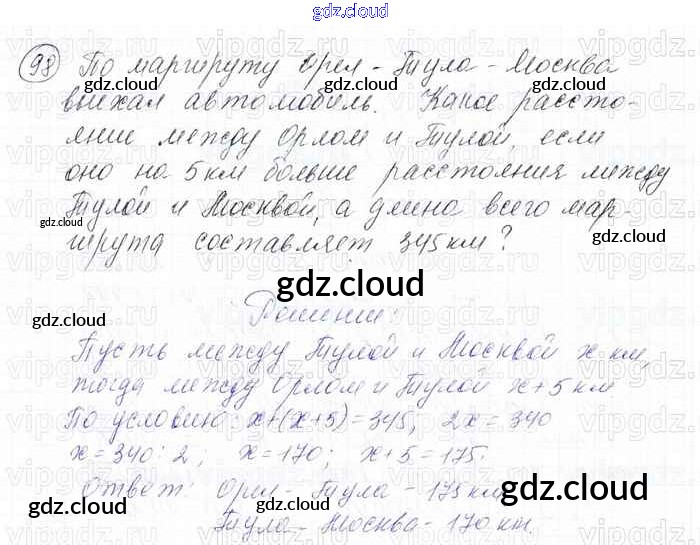 gdz.cloud
98 По маршруту Орел - Тула - Москва
выехал автомобиль. Какое рассто-
яние между Орлом и Тулой, если
оно на 5 км больше расстояния между
Тулой и Москвой, а длина всего мар-
шрута составляет 345 км?
Решение:
Пусть между Тулой и Москвой x км,
тогда между Орлом и Тулой x + 5 км
По условию: x+(x+5)=345, 2x = 340
x = 340 : 2; x = 170; x+5 = 175.
Ответ: Орел - Тула - 175 км
Тула - Москва - 170 км.